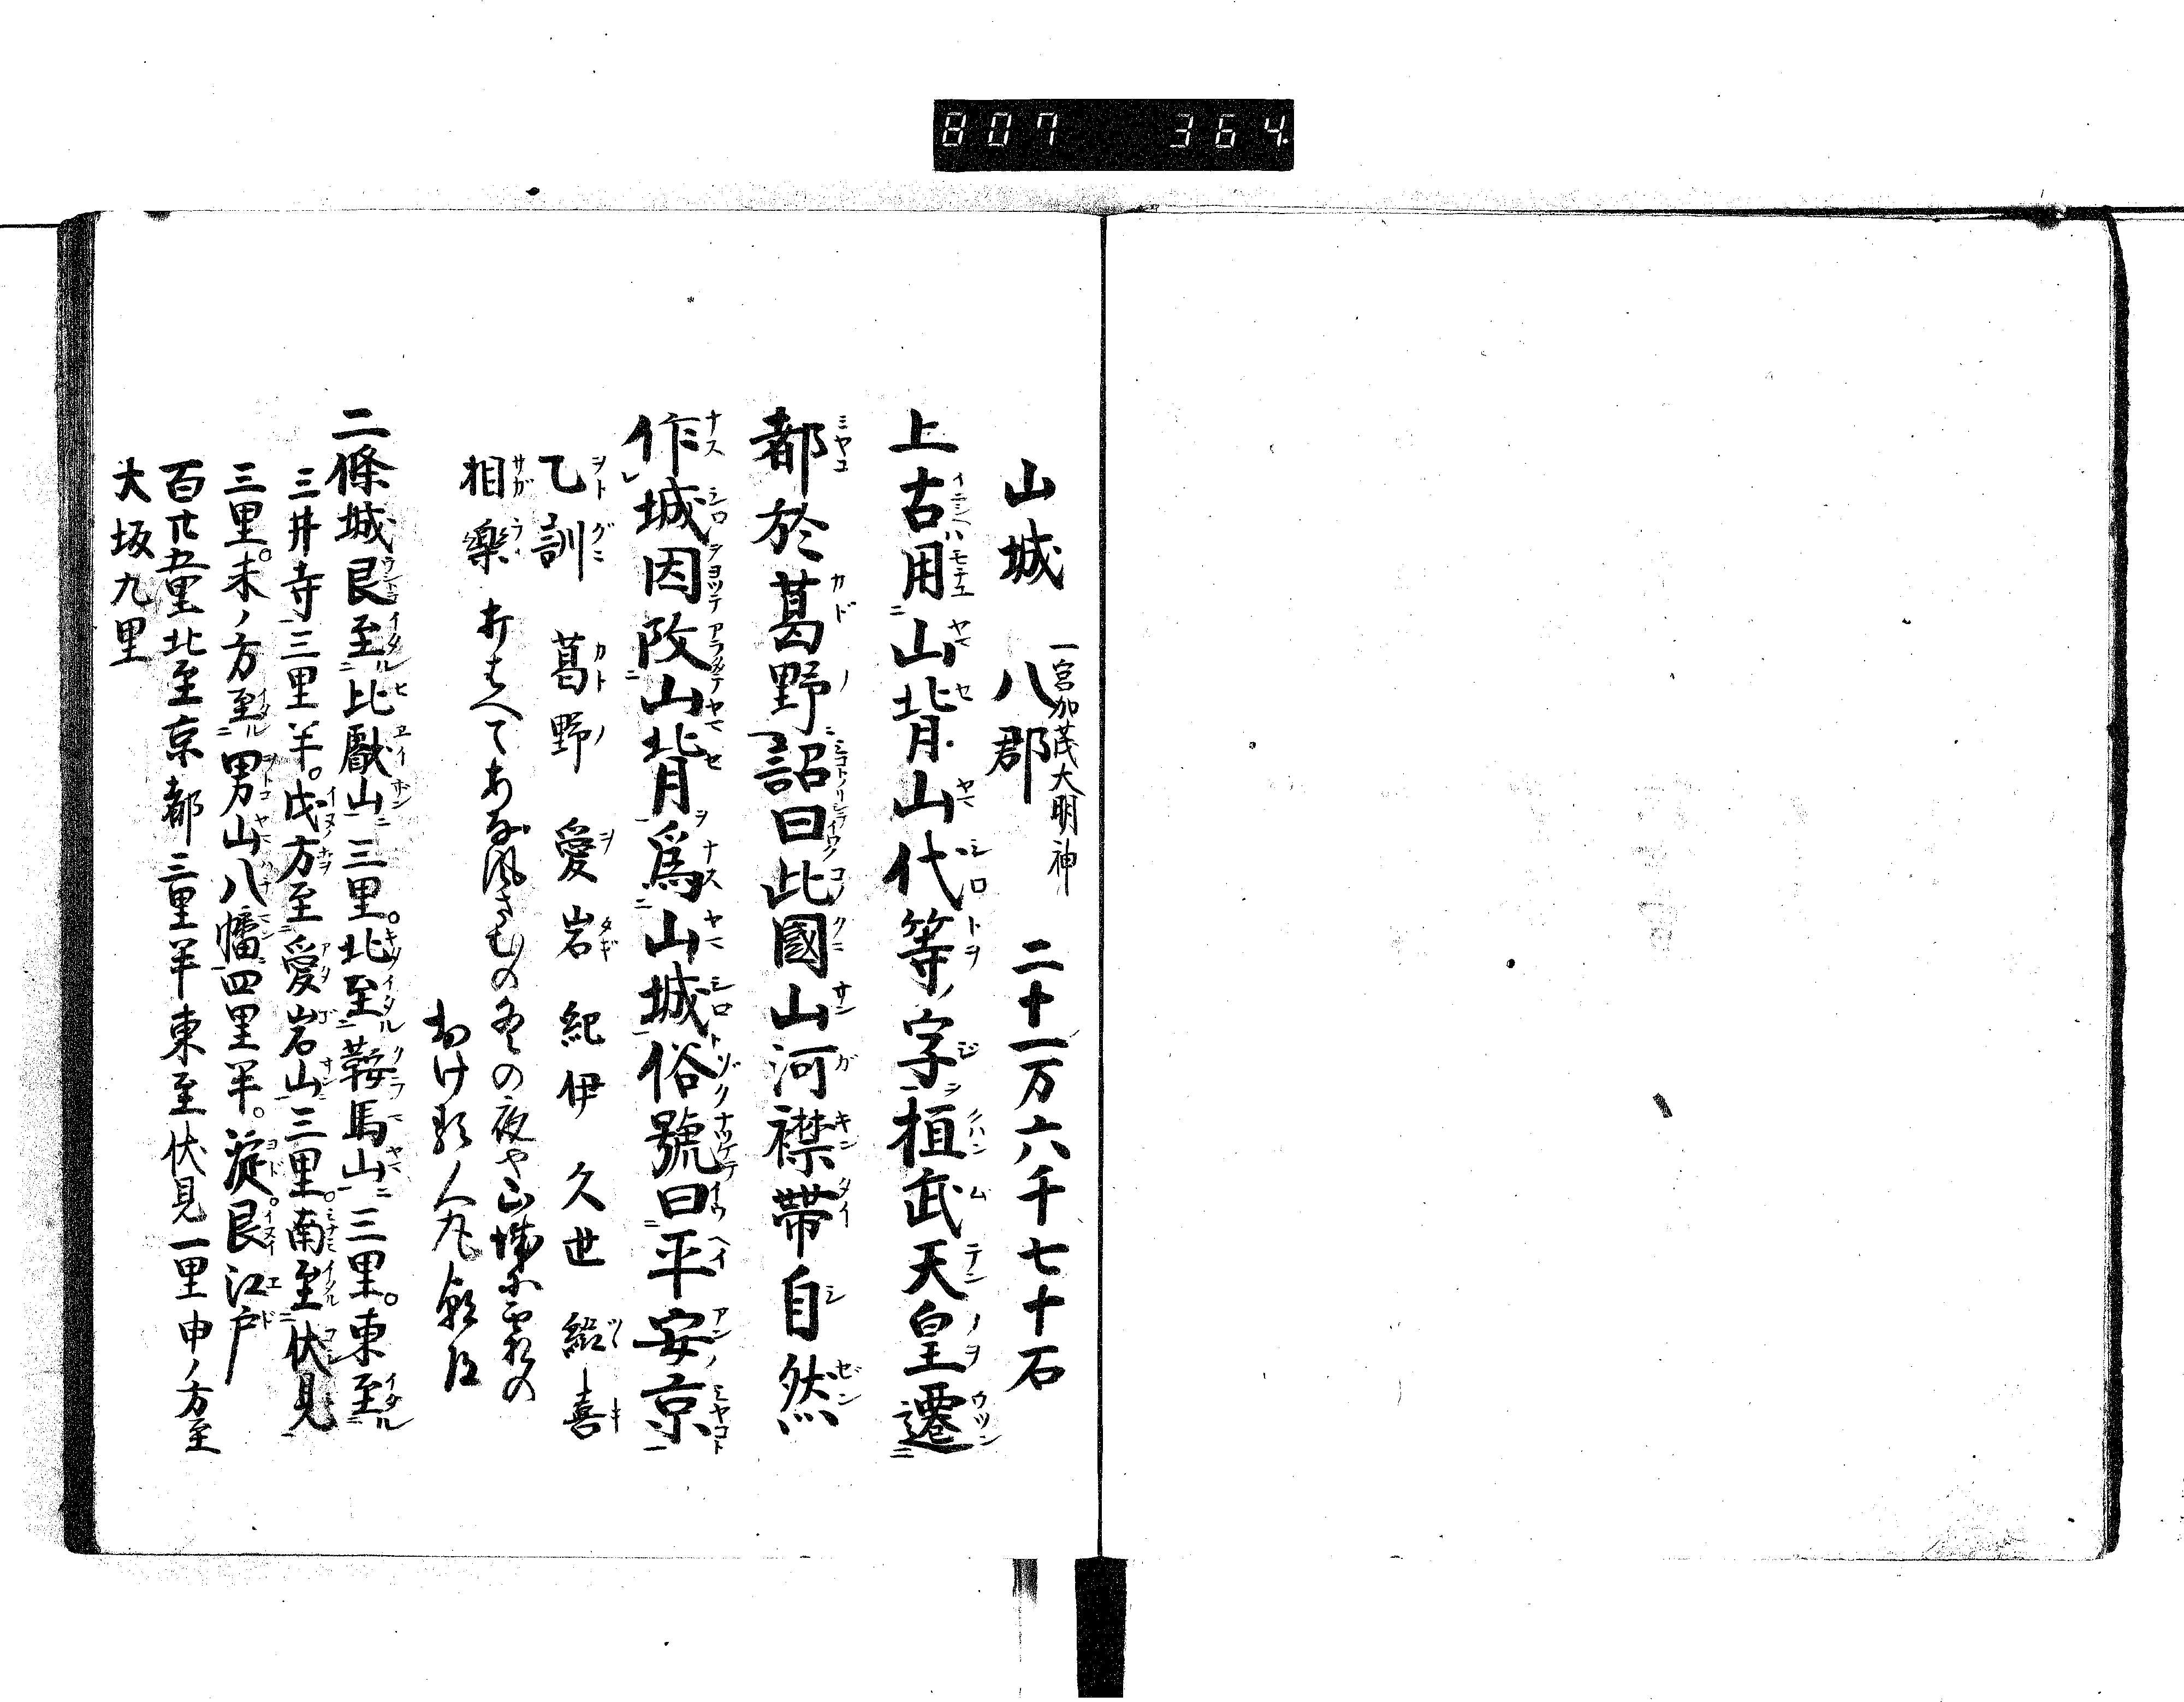 807 364.
山城 八郡 一宮加茂大明神 二十一万六千七十石
上古用山背山代等ノ字植武天皇遷
都於葛野詔曰此國山河襟帯自然
作城因改山背爲山城俗號曰平安京
乙訓 葛野 愛宕 紀伊 久世 綴喜
相樂
冬の夜や山城
わけ 人丸
二條城艮至比叡山三里。北至鞍馬山三里。東至
三井寺三里半。戌方至愛宕山三里。南至伏見
三里。未ノ方至男山八幡四里半。淀。艮江戸
百廿五里北至京都三里半東至伏見一里申ノ方至
大坂九里